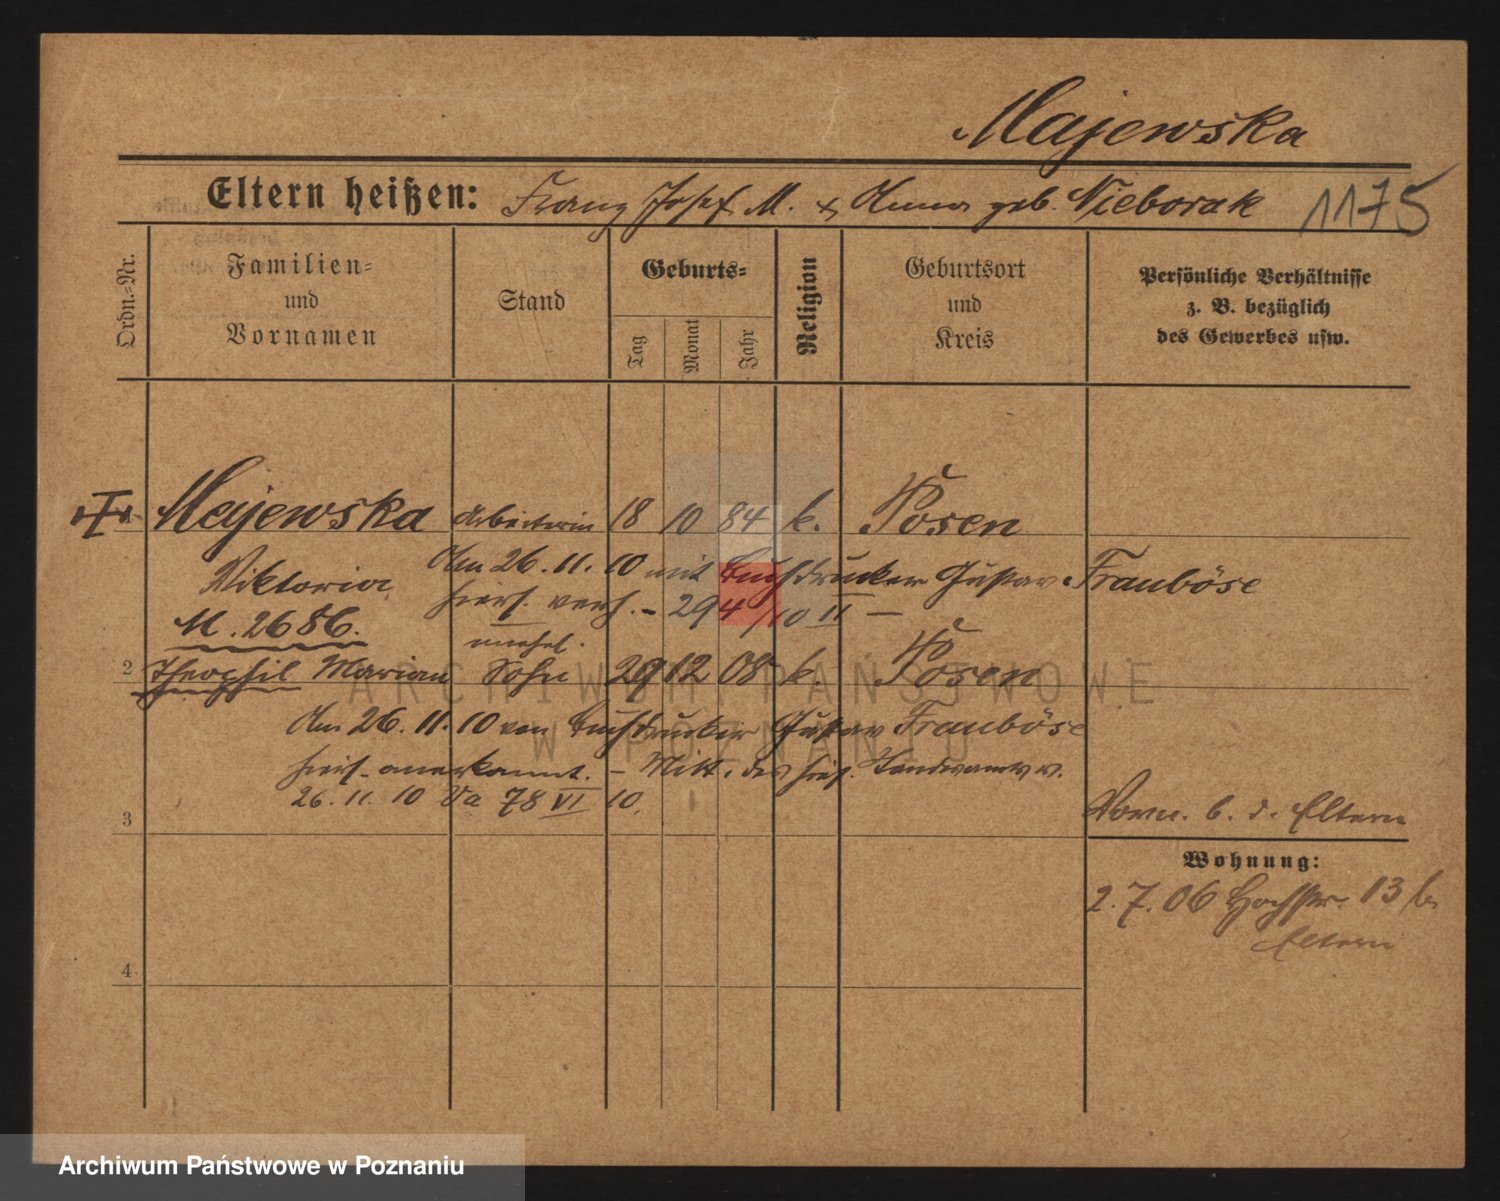 Majewska
Eltern heißen: Franz Josef M. & Anna geb. Nieborak 1175
Ordn.-Nr.
Familien-
und
Vornamen
Stand
Geburts-
Tag
Monat
Jahr
Religion
Geburtsort
und
Kreis
Persönliche Verhältnisse
z. B. bezüglich
des Gewerbes usw.
Majewska Arbeiterin 18 10 84 k. Posen
Viktoria Am 26.11.10 mit Buchdrucker Gustav Frauböse
hiers. verh. - 294/10 II -
M. 2686.
unehel.
2 Theophil Marian Sohn 29 12 08 k. Posen
Am 26.11.10 von Buchdrucker Gustav Frauböse
hiers. anerkannt. - Mitt. des hies. Standesamts v.
26.11.10 Va 78 VI 10.
3
Vorm. b. d. Eltern
Wohnung:
2.7.06 Hochstr. 13 b.
Eltern
4
ARCHIWUM PAŃSTWOWE
W POZNANIU
Archiwum Państwowe w Poznaniu